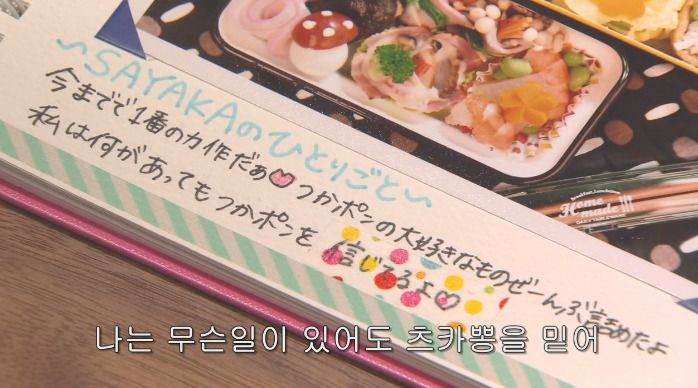 ～SAYAKAのひとりごと～
今までで1番の力作だぁ♡つかポンの大好きなものぜーんぶ詰めたよ
私は何があってもつかポンを信じてるよ♡
Home
made
나는 무슨일이 있어도 츠카뽕을 믿어